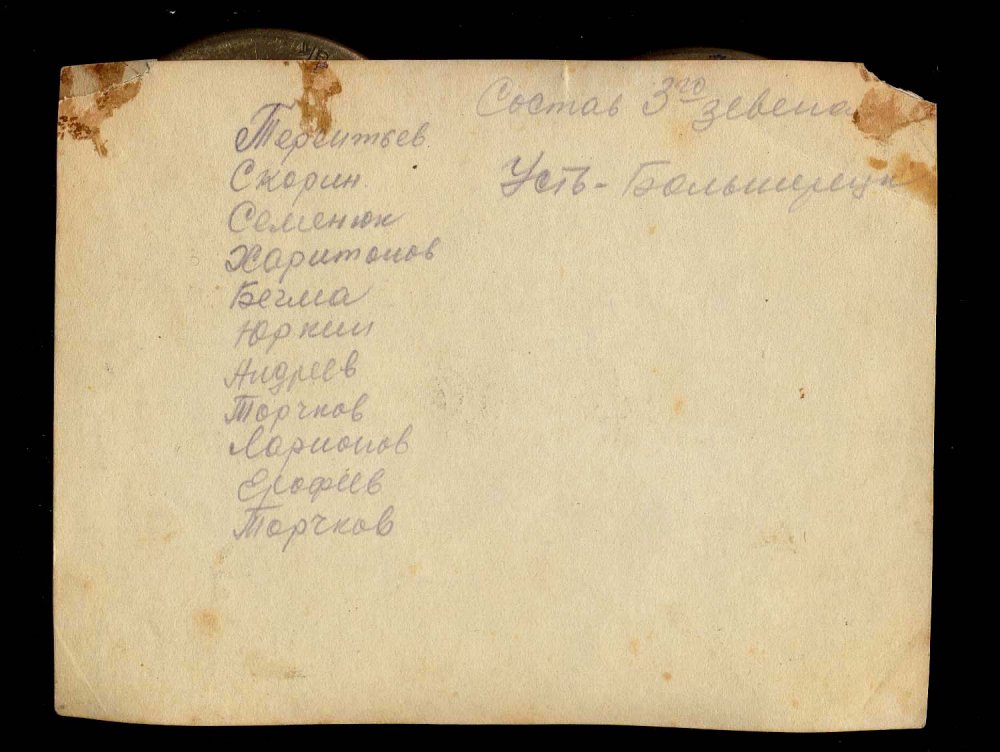 Состав 3го звена
Усть-Большерецк
Терентьев
Скорин
Семенюк
Харитонов
Бегма
Юркин
Андреев
Торчков
Ларионов
Ерофеев
Торчков